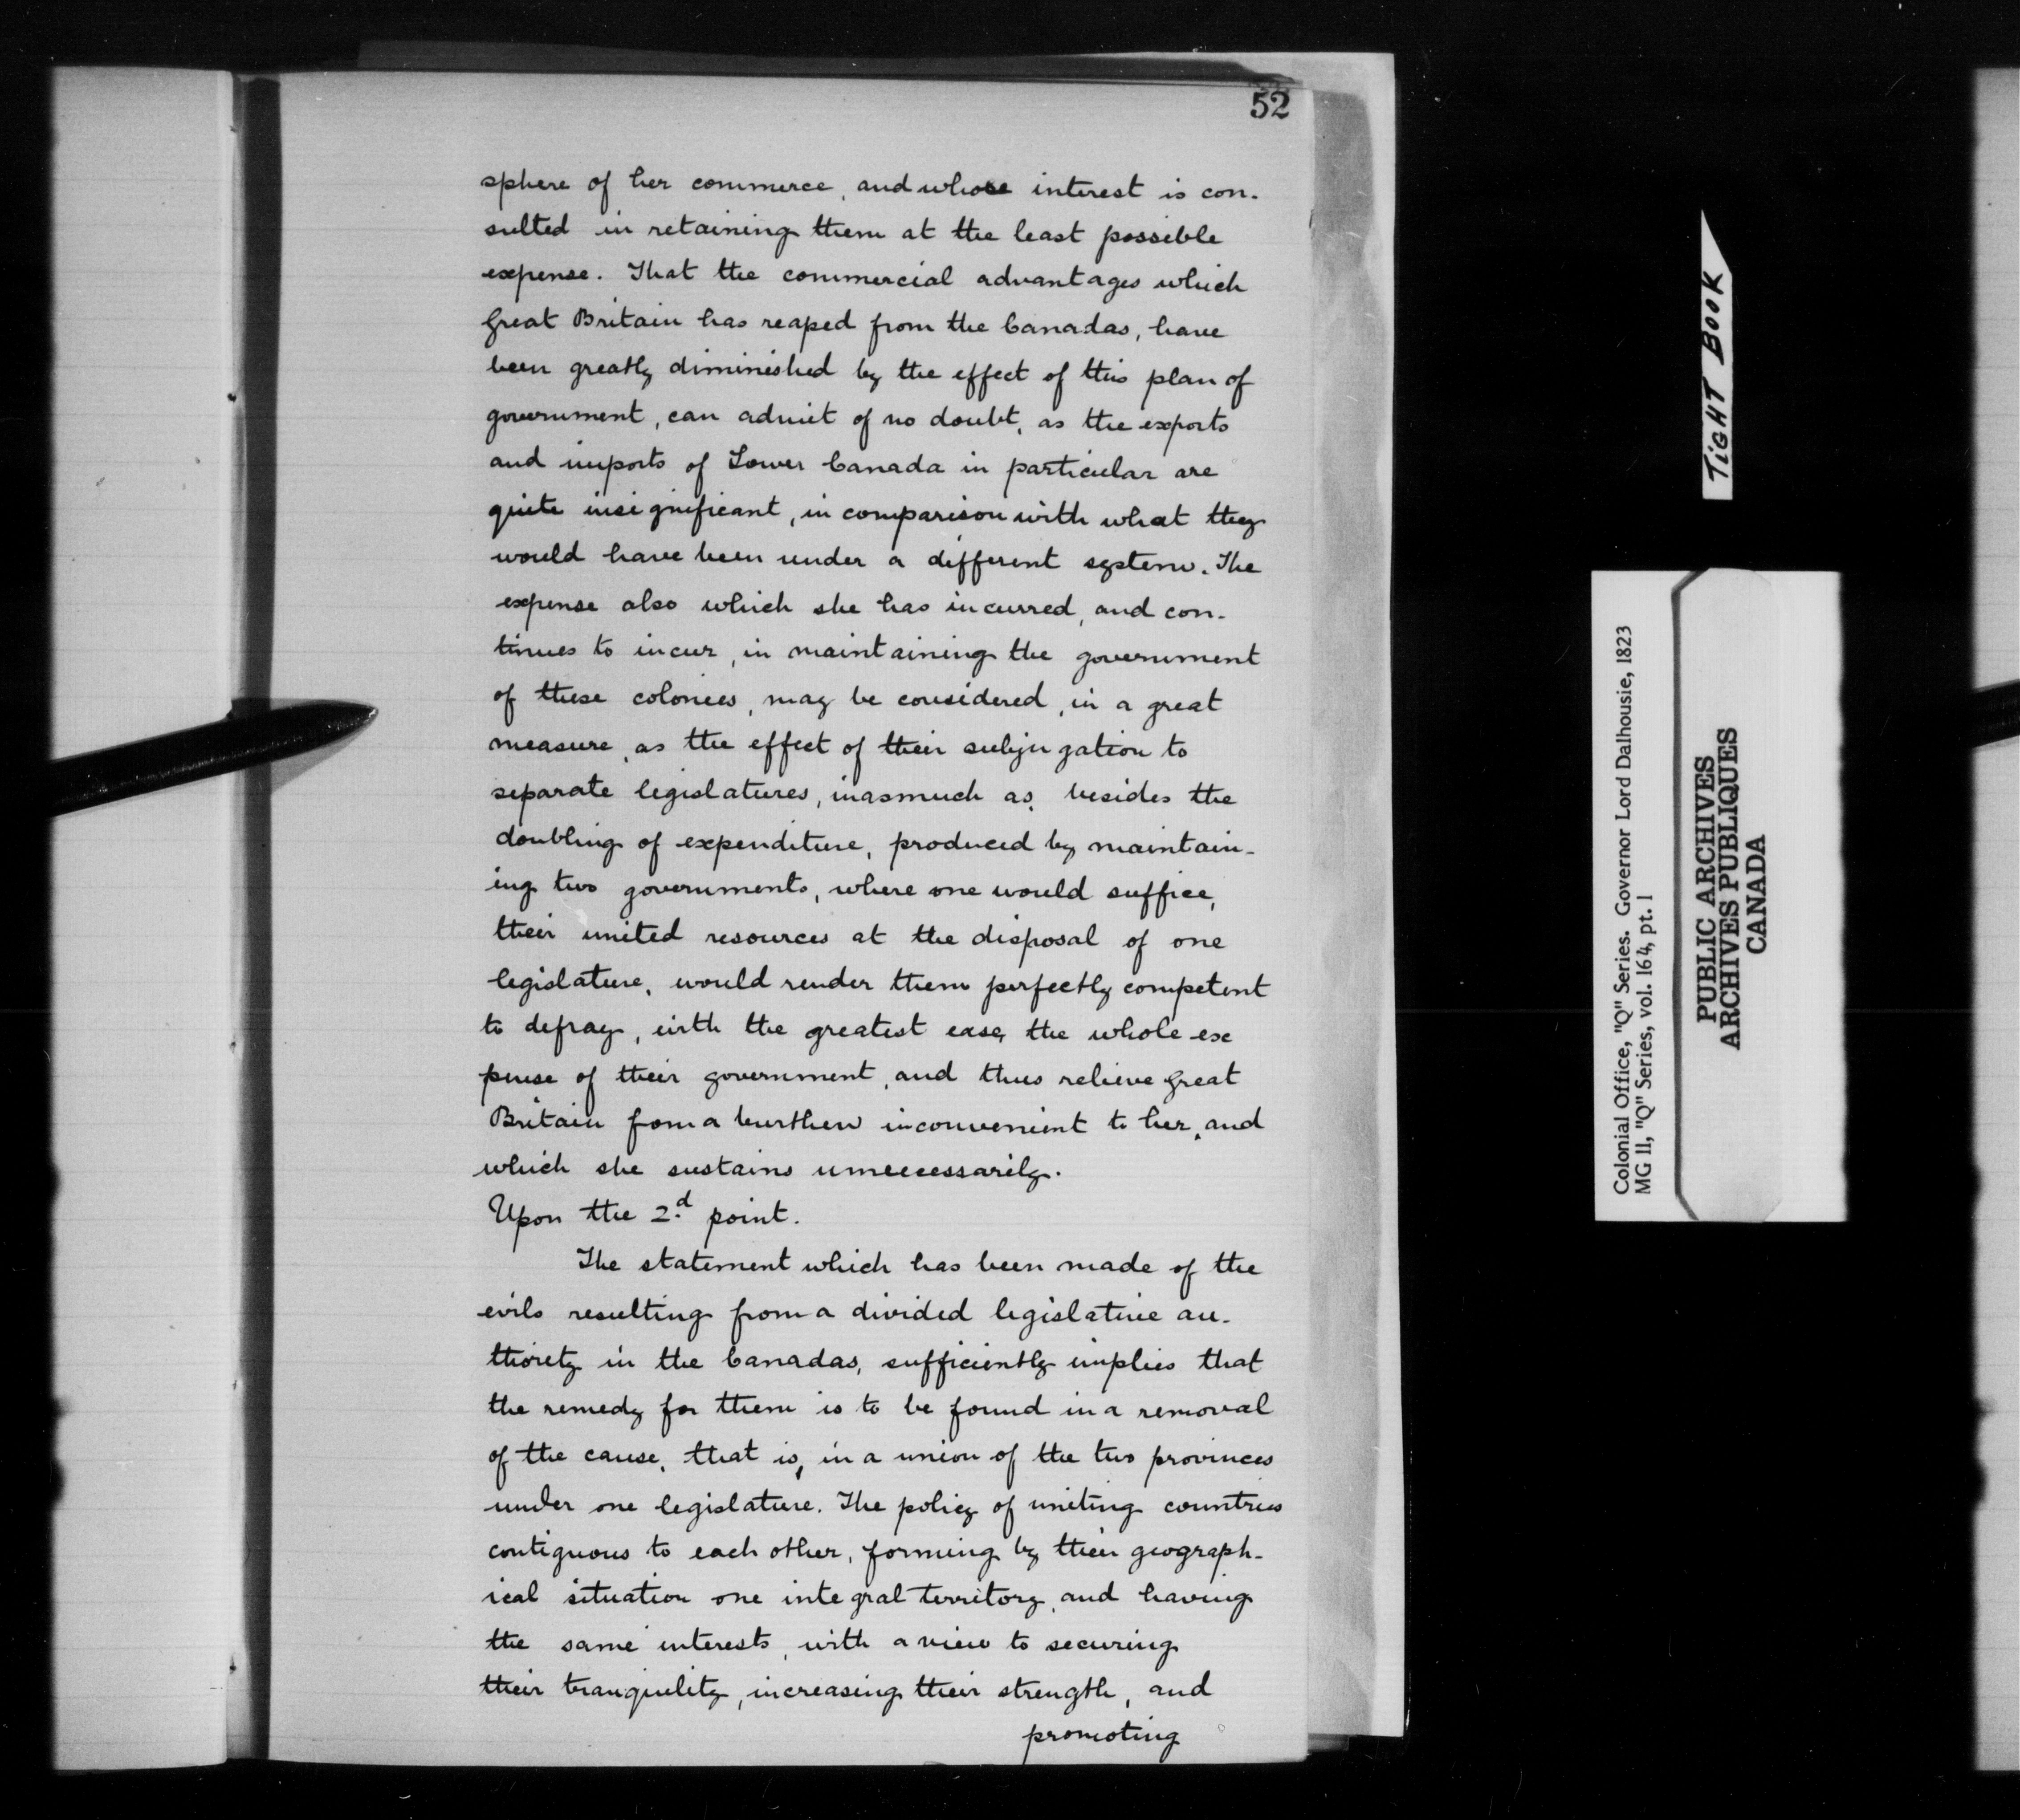 52
sphere of her commerce, and whose interest is con-
sulted in retaining them at the least possible
expense. That the commercial advantages which
Great Britain has reaped from the Canadas, have
been greatly diminished by the effect of this plan of
government, can admit of no doubt, as the exports
and imports of Lower Canada in particular are
quite insignificant, in comparison with what they
would have been under a different system. The
expense also which she has incurred, and con-
tinues to incur, in maintaining the government
of these colonies, may be considered, in a great
measure, as the effect of their subjugation to
separate legislatures, inasmuch as, besides the
doubling of expenditure, produced by maintain-
ing two governments, where one would suffice,
their united resources at the disposal of one
legislature, would render them perfectly competent
to defray, with the greatest ease, the whole ex
pense of their government, and thus relieve Great
Britain from a burthen inconvenient to her, and
which she sustains unnecessarily.
Upon the 2.d point.
The statement which has been made of the
evils resulting from a divided legislative au-
thority in the Canadas, sufficiently implies that
the remedy for them is to be found in a removal
of the cause, that is, in a union of the two provinces
under one legislature. The policy of uniting countries
contiguous to each other, forming by their geograph-
ical situation one integral territory, and having
the same interests, with a view to securing
their tranquility, increasing their strength, and
promoting
TIGHT BOOK
Colonial Office, "Q" Series. Governor Lord Dalhousie, 1823
MG 11, "Q" Series, vol. 164, pt. 1
PUBLIC ARCHIVES
ARCHIVES PUBLIQUES
CANADA